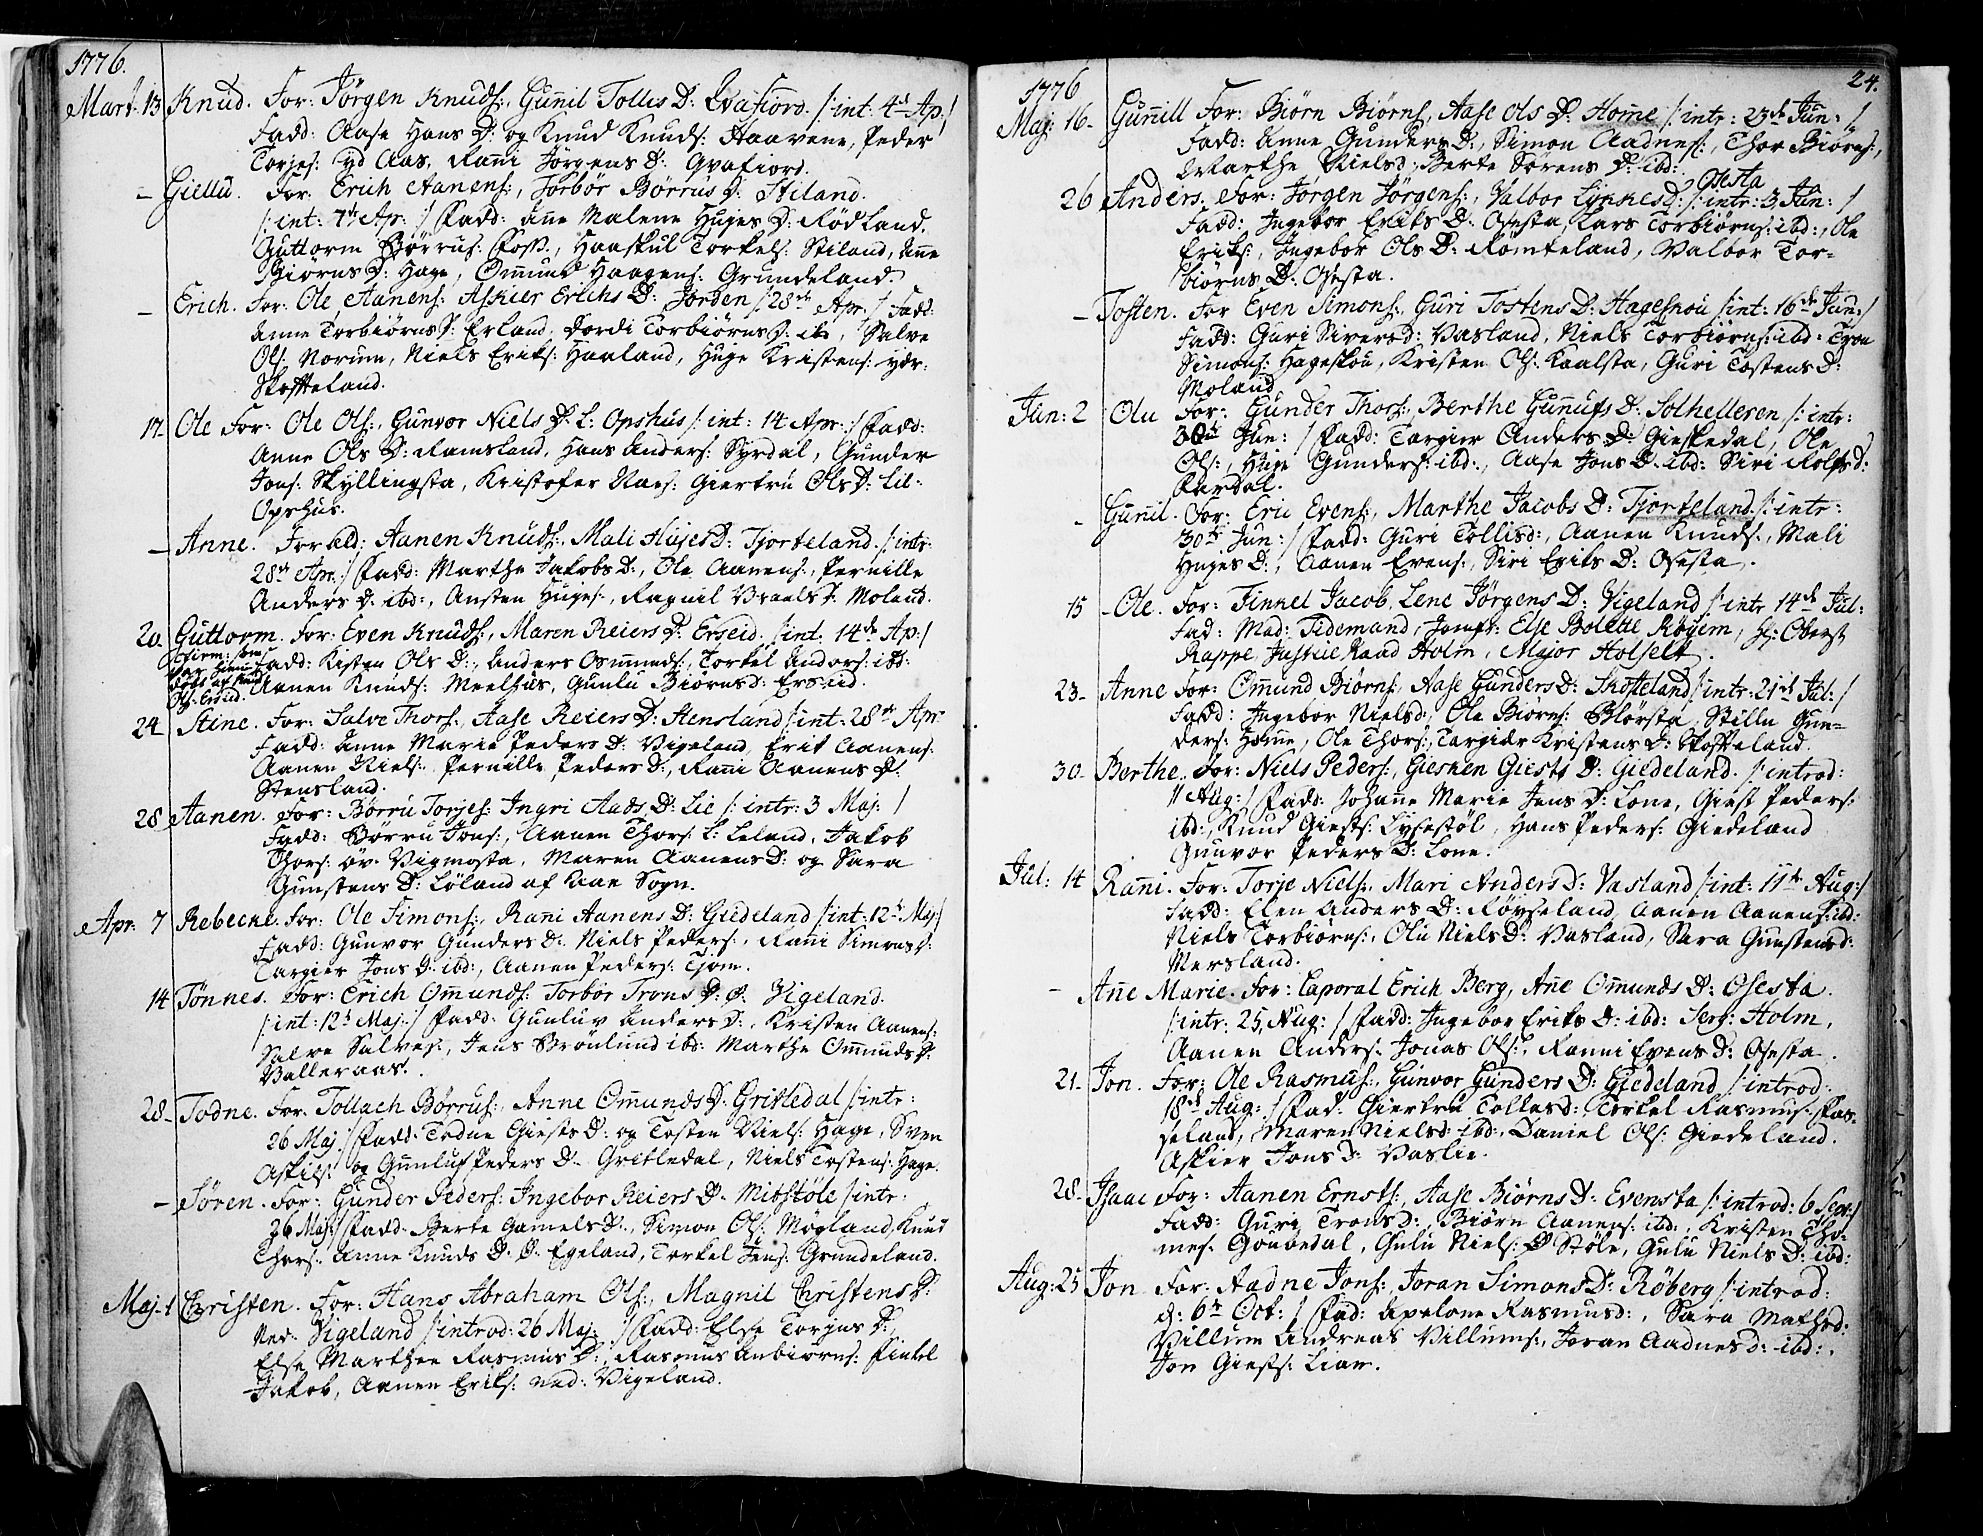 1776.
Mart. 13 Knud. For: Jörgen Knuds:, Guñil Tollis D: Qvafiord. /: int: 4d Ap: /
Fadd: Aase Hans D: og Knud Knuds: Haavene, Peder
Torjes: yd Aas, Rañi Jörgens D: Qvafiord.
- Giellu. For: Erich Aanens:, Torbör Börrus D: Stiland.
/: int: 7d Ap: / Fadd: Añe Malene Huges D: Rödland.
Guttorm Börrus: Foss, Haaskul Torkels: Stiland, Añe
Biörns D: Hage, Omund Haagens: Grundeland.
- Erich. For: Ole Aanens: Askier Erichs D: Jorden /: 28de Apr. / Fadd:
Anne Torbiörns D: Erland, Dordi Torbiörns D: ib:, Salve
Ols: Norum, Niels Eriks: Haaland, Huge Kristens: ydr:
Skofteland.
17. Ole For: Ole Ols:, Gunvor Niels D: L: Opshus /: int: 14 Apr: / Fadd:
Anne Ols D: Ramsland, Hans Anders: Syrdal, Gunder
Jons: Skyllingsta, Kristofer Giertru Ols D: Lil-
Opshus.
- Anne. Foræld: Aanen Knuds:, Mali Hujes D: Tjorteland. /: intr:
28de Apr. / Fadd: Marthe Jakobs D:, Ole Aanens:, Pernille
Anders D: ibd:, Ansten Huges:, Ragnil D: Moland.
20. Guttorm. For: Even Knuds:, Maren Reiers D: Erseid. /: int: 14de Ap: /
Fadd: Kisten Ols D:, Anders Osmunds:, Torkel Anders: ibd:
Aanen Knuds: Meelhus, Gunlu Biörnsd: Erseid.
Ols: Erseid.
24 Stine. For: Salve Thors:, Aase Reiers D: Stensland /: int: 28de Apr:
Fadd: Anne Marie Peders D: Vigeland, Erik Aanens:
Aanen Niels: Pernille Peders D:, Rañi Aanens D:
Stensland.
28 Aanen. For: Börru Torjes: Ingri Aads D: Lie /: intr: 3 Maj: /
Fadd: Börru Jons:, Aanen Thors: L: Leland, Jakob
Thors: öv: Vigmosta, Maren Aanens D: og Sara
Gunstens D: Löland af Aae Sogn.
Apr: 7 Rebecke. For: Ole Simons:, Rani Aanens D: Giedeland /: int: 12d Maj: /
Fadd: Gunvor Gunders D: Niels Peders:, Rani Simons D:
Targier Jons D: ibd:, Aanen Peders: Tjom.
14 Tönnes. For: Erich Omunds: Torbör Trons D: Ö: Vigeland.
/: int: 12d Maj: / Fadd: Gunluv Anders D:, Kristen Aanens:
Salve Salves:, Jens Brönlund ibd: Marthe Omunds D:
Valleraas.
28. Todne. For: Tollach Börrus:, Anne Omunds D: Gritledal /: intr:
26 Maj: / Fadd: Todne Giests D: og Tosten Niels: Hage, Sven
Askils: og Gunluf Peders D: Gritledal, Niels Tostens: Hage.
- Sören. For: Gunder Peders: Ingebor Reiers D: Mitstöle /: intr:
26 Maj: / Fadd: Berte Gamels D:, Simon Ols: Mögland, Knud
Thors: Anne Knuds D: Ö: Egeland, Torkel Jens: Grundeland.
Maj. 1 Christen. For: Hans Abraham Ols:, Magnil Christens D:
Ned: Vigeland /: introd: 26 Maj: / Fadd: Else Torjus D:
Else Marthee Rasmus D:, Rasmus Anbiörns: Finkel
Jakob, Aanen Eriks: ned: Vigeland.
24.
1776
Maj: 16- Guñill For: Biörn Biörns:, Aase Ols D: Home /: intr: 23de Jun: /
Fadd: Anne Gunders D:, Simon Aadnes:, Thor Biörns:,
Marthe Nielsd: Berte Sörens D: ibd:
26 Anders. For: Jorgen Jörgens:, Valbor Lynnes D: Osesta /: intr: 3 Jun: /
Fadd: Ingebor Eriks D: Osesta, Lars Torbiörns: ibd:, Ole
Eriks:, Ingebor Ols D: Römteland, Valbor Tor-
biörns D: Osesta.
- Tosten. For Even Simons:, Guri Tostens D: Hageskou /: int: 16de Jun: /
Fadd: Guri Siversd: Vasland, Niels Torbiörns: ibd: Tron
Simons: Hageskou, Kristen Ols: Kaalsta, Guri Tostens D:
Moland
Jun: 2 Olu For: Gunder Thors:, Berthe Gunufs D: Solhelleren /: intr:
30de Jun: / Fadd: Targier Anders D: Gieskedal, Ole
Ols:, Huge Gunders: ibd:, Aase Jons D: ibd: Siri Rolfsd:
- Guñil. For: Eric Evens:, Marthe Jacobs D: Tjorteland /: intr:
30de Jun: / Fadd: Guri Tollisd:, Aanen Knuds:, Mali
Huges D:, Aanen Evens:, Siri Eriks D: Osesta.
15 - Ole. For: Finkel Jacob, Lene Jörgens D: Vigeland /: intr 14de Jul:
Fad: Mad: Tidemand, Jomfr: Else Bolette Röyem, Hr: Oberst
Rappe, Justice Raad Holm, Major Holfelt.
23- Anne For: Omund Biörns:, Aase Gunders D: Skofteland /: intr: 21de Jul: /
Fadd: Ingebor Nielsd:, Ole Biörns: Blörsta, Stillu Gun-
ders: Home, Ole Thors:, Targidr Kristens D: Skofteland.
30- Berthe. For: Niels Peders:, Giesken Giests D: Giedeland. /: introd:
11 Aug: / Fadd: Johañe Marie Jens D: Lone, Giest Peders:
ibd:, Knud Giests: Lysestöl, Hans Peders: Giedeland
Gunvor Peders D: Lone.
Jul: 14 Rañi. For: Torje Niels:, Mari Anders D: Vasland /: int: 11de Aug: /
Fadd: Elen Anders D: Röyseland, Aanen Aanens: ibd:
Niels Torbiörns:, Olu Niels D: Vasland, Sara Gunstensd:
Mersland.
- Añe Marie. For: Caporal Erich Berg, Añe Omunds D: Osesta.
/: intr: 25 Aug: / Fadd: Ingebor Eriks D: ibd: Serg: Holm,
Aanen Anders: Jonas Ols:, Ranni Evens D: Osesta.
21- Jon. For: Ole Rasmus:, Gunvor Gunders D: Giedeland /: introd:
18de Aug: / Fad: Giertru Tollasd: Terkel Rasmus: Fas-
seland, Maren Nielsd: ibd:, Daniel Ols: Giedeland.
Askier Jons D: Vaslie.
28- Isaac For: Aanen Ernsts:, Aase Biörns D: Evensta /: introd: 6 Sept: /
Fadd: Guri Trons D:, Biörn Aanens: ibd:, Kristen Tho-
mes: Goubedal, Gulu Niels: D Stöle, Gulu Niels D: ibd:
Aug: 25 Jon For: Aadne Jons: Joran Simons D: Röberg /: introd:
d: 6te Oct: / Fad: Apelone Rasmusd:, Sara Mathsd:
Villum Andreas Villums:, Joran Aadnes D: ibd:.
Jon Giests: Lian.